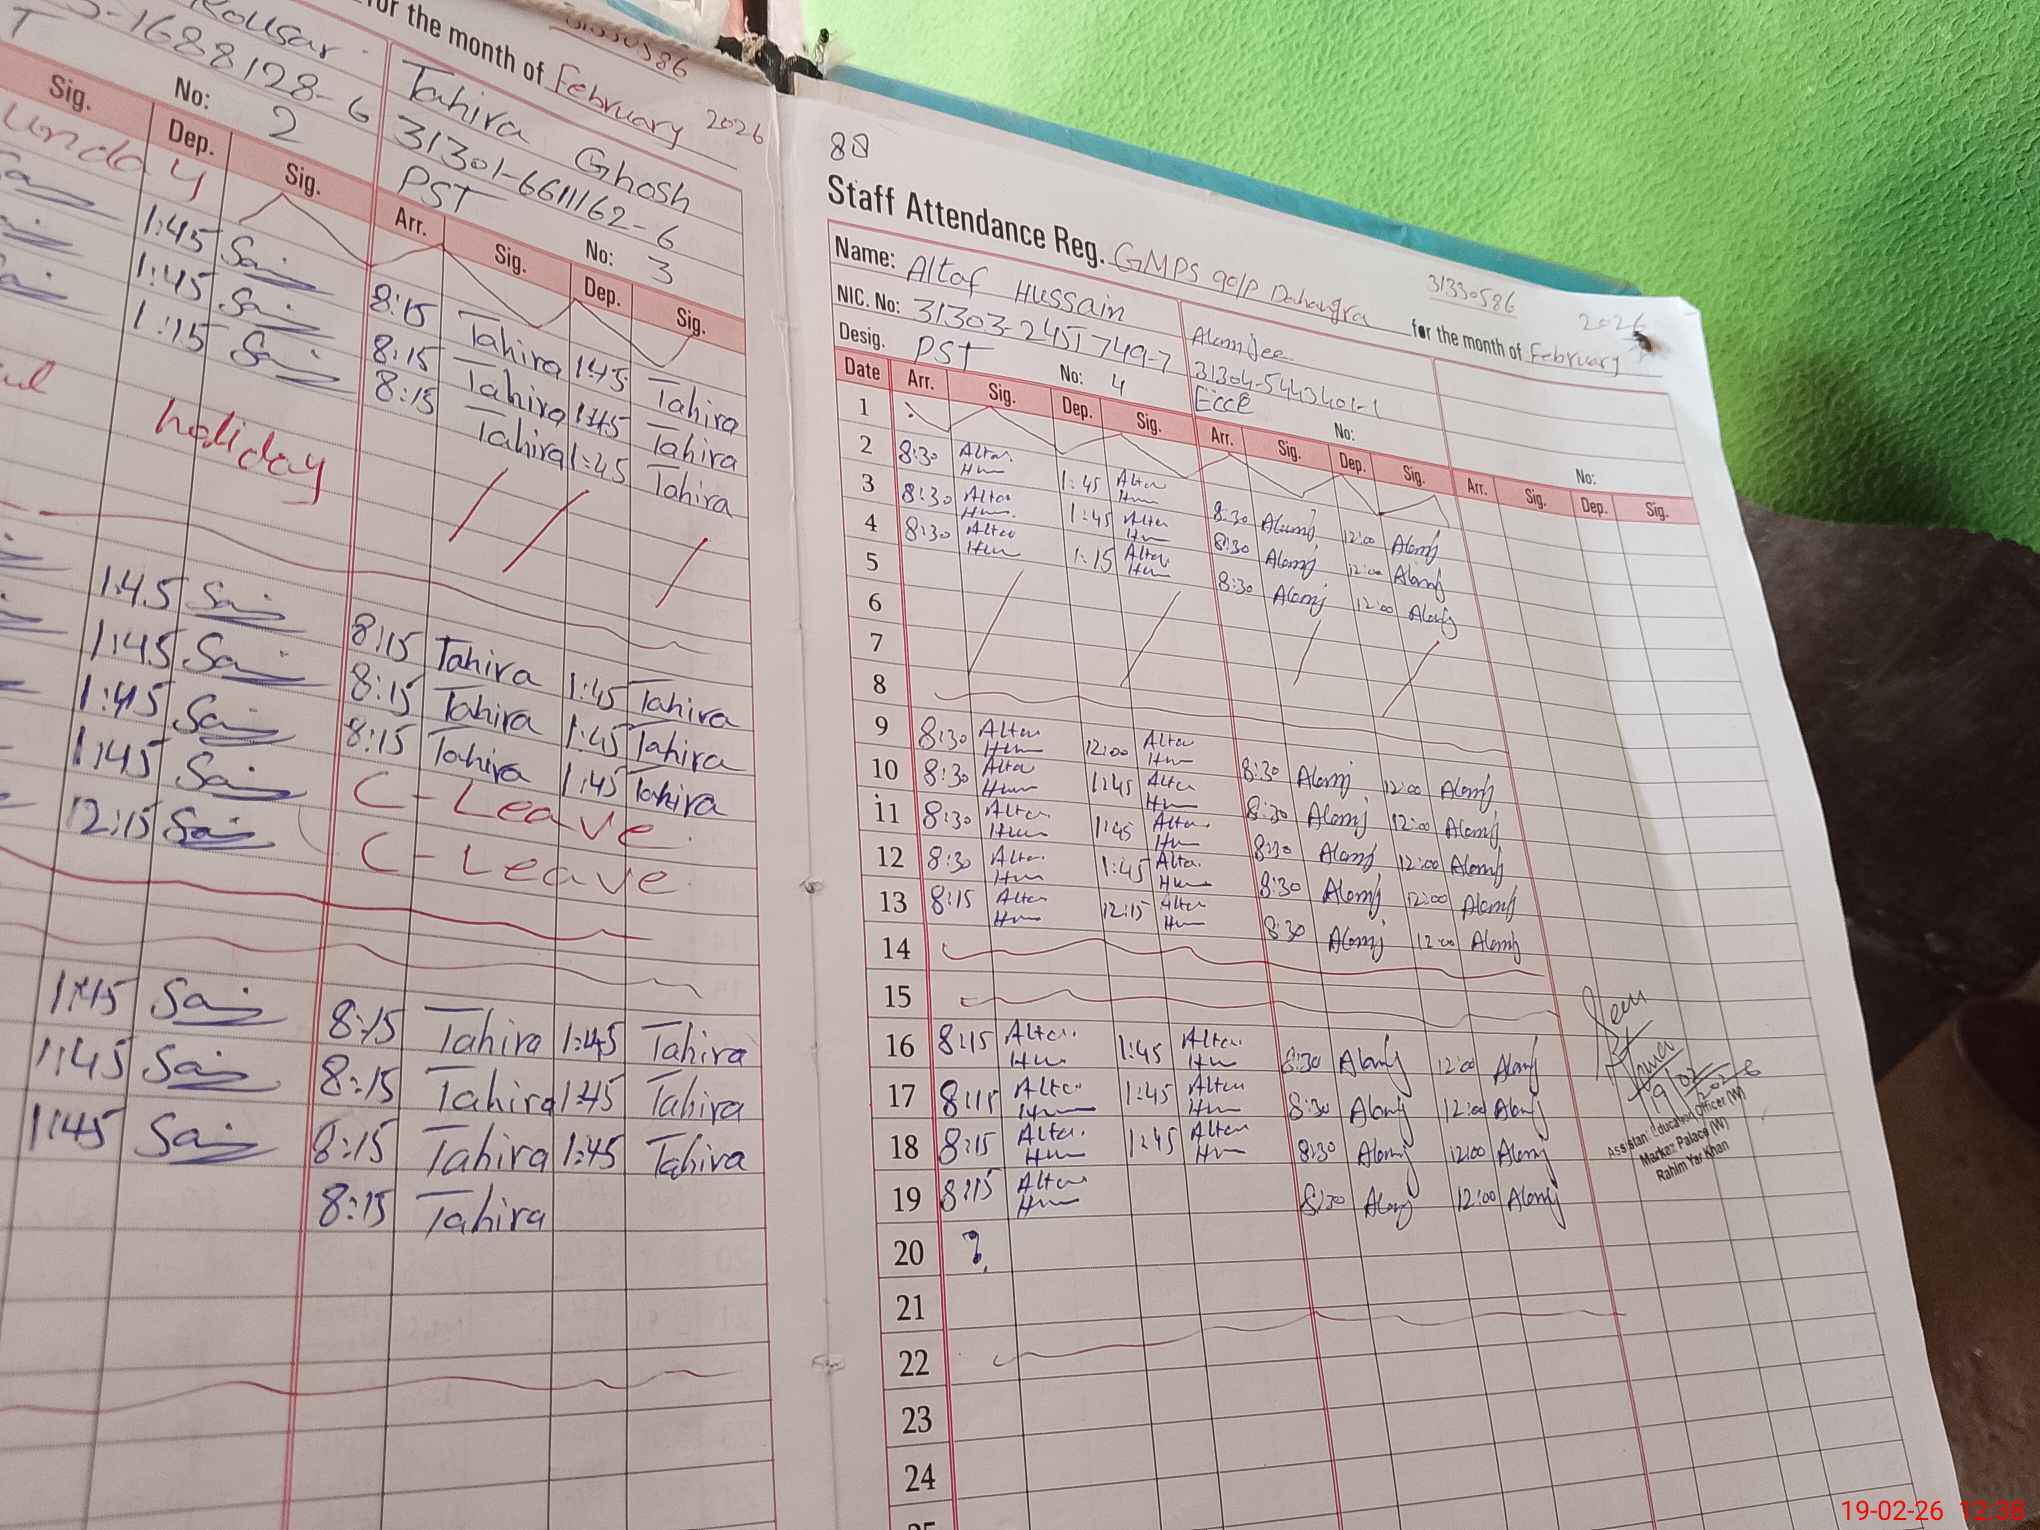 Kousar
-1688128-6
T
No: 2
Sig. Dep. Sig.
unday
1:45 Sai
1:45 Sai
1:15 Sai
holiday
1:45 Sai
1:45 Sai
1:45 Sai
1:45 Sai
12:15 Sai
1:45 Sai
1:45 Sai
1:45 Sai
for the month of February 2026
31330586
Tahira Ghosh
31301-6611162-6
PST
No: 3
Arr. Sig. Dep. Sig.
8:15 Tahira 1:45 Tahira
8:15 Tahira 1:45 Tahira
8:15 Tahira 1:45 Tahira
8:15 Tahira 1:45 Tahira
8:15 Tahira 1:45 Tahira
8:15 Tahira 1:45 Tahira
C-Leave
C-Leave
8:15 Tahira 1:45 Tahira
8:15 Tahira 1:45 Tahira
8:15 Tahira 1:45 Tahira
8:15 Tahira
88
Staff Attendance Reg. GMPS 90/P Dahangra for the month of February 2026
31330586
Name: Altaf Hussain Alamjee
NIC. No: 31303-2451749-7 31304-5443401-1
Desig. PST No: 4 Ecce No: No:
Date Arr. Sig. Dep. Sig. Arr. Sig. Dep. Sig. Arr. Sig. Dep. Sig.
1
2 8:30 1:45 8:30 Alamj 12:00 Alamj
3 8:30 1:45 8:30 Alamj 12:00 Alamj
4 8:30 1:15 8:30 Alamj 12:00 Alamj
5
6
7
8
9 8:30 12:00 8:30 Alamj 12:00 Alamj
10 8:30 1:45 8:30 Alamj 12:00 Alamj
11 8:30 1:45 8:30 Alamj 12:00 Alamj
12 8:30 1:45 8:30 Alamj 12:00 Alamj
13 8:15 12:15 8:30 Alamj 12:00 Alamj
14
15
16 8:15 1:45 8:30 Alamj 12:00 Alamj
17 8:15 1:45 8:30 Alamj 12:00 Alamj
18 8:15 1:45 8:30 Alamj 12:00 Alamj
19 8:15 8:30 Alamj 12:00 Alamj
20 ?
21
22
23
24
25
Seen
19/02/2026
Assistant Education Officer (W)
Markaz Palace (W)
Rahim Yar Khan
19-02-26 12:38